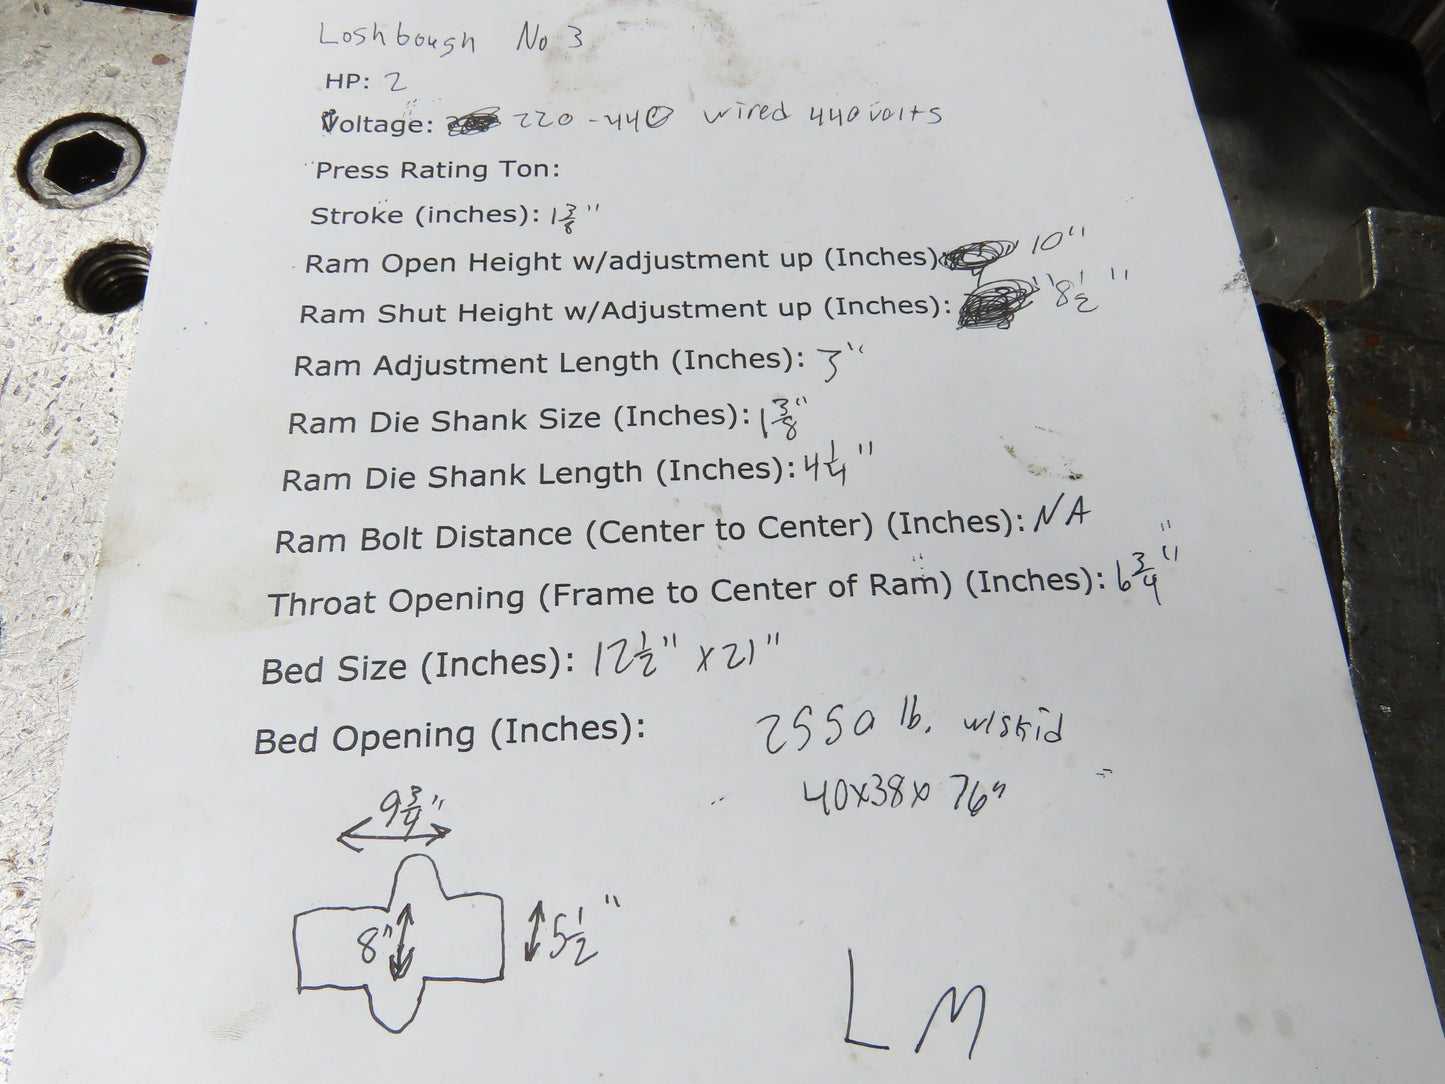 Loshbough No 3
HP: 2
Voltage: 220-440 wired 440 volts
Press Rating Ton:
Stroke (inches): 1 3/8"
Ram Open Height w/adjustment up (Inches) 10"
Ram Shut Height w/Adjustment up (Inches): 8 1/2"
Ram Adjustment Length (Inches): 3"
Ram Die Shank Size (Inches): 1 3/8"
Ram Die Shank Length (Inches): 4 1/4"
Ram Bolt Distance (Center to Center) (Inches): NA
Throat Opening (Frame to Center of Ram) (Inches): 6 3/4"
Bed Size (Inches): 12 1/2" x 21"
Bed Opening (Inches):
2550 lb. w/skid
40x38x 76"
9 3/4"
8"
5 1/2"
LM